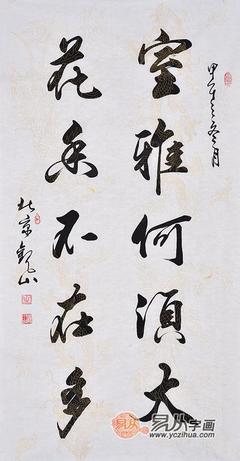 甲午之冬月
室雅何須大
花香不在多
北京観山
易从字画
www.yczihua.com